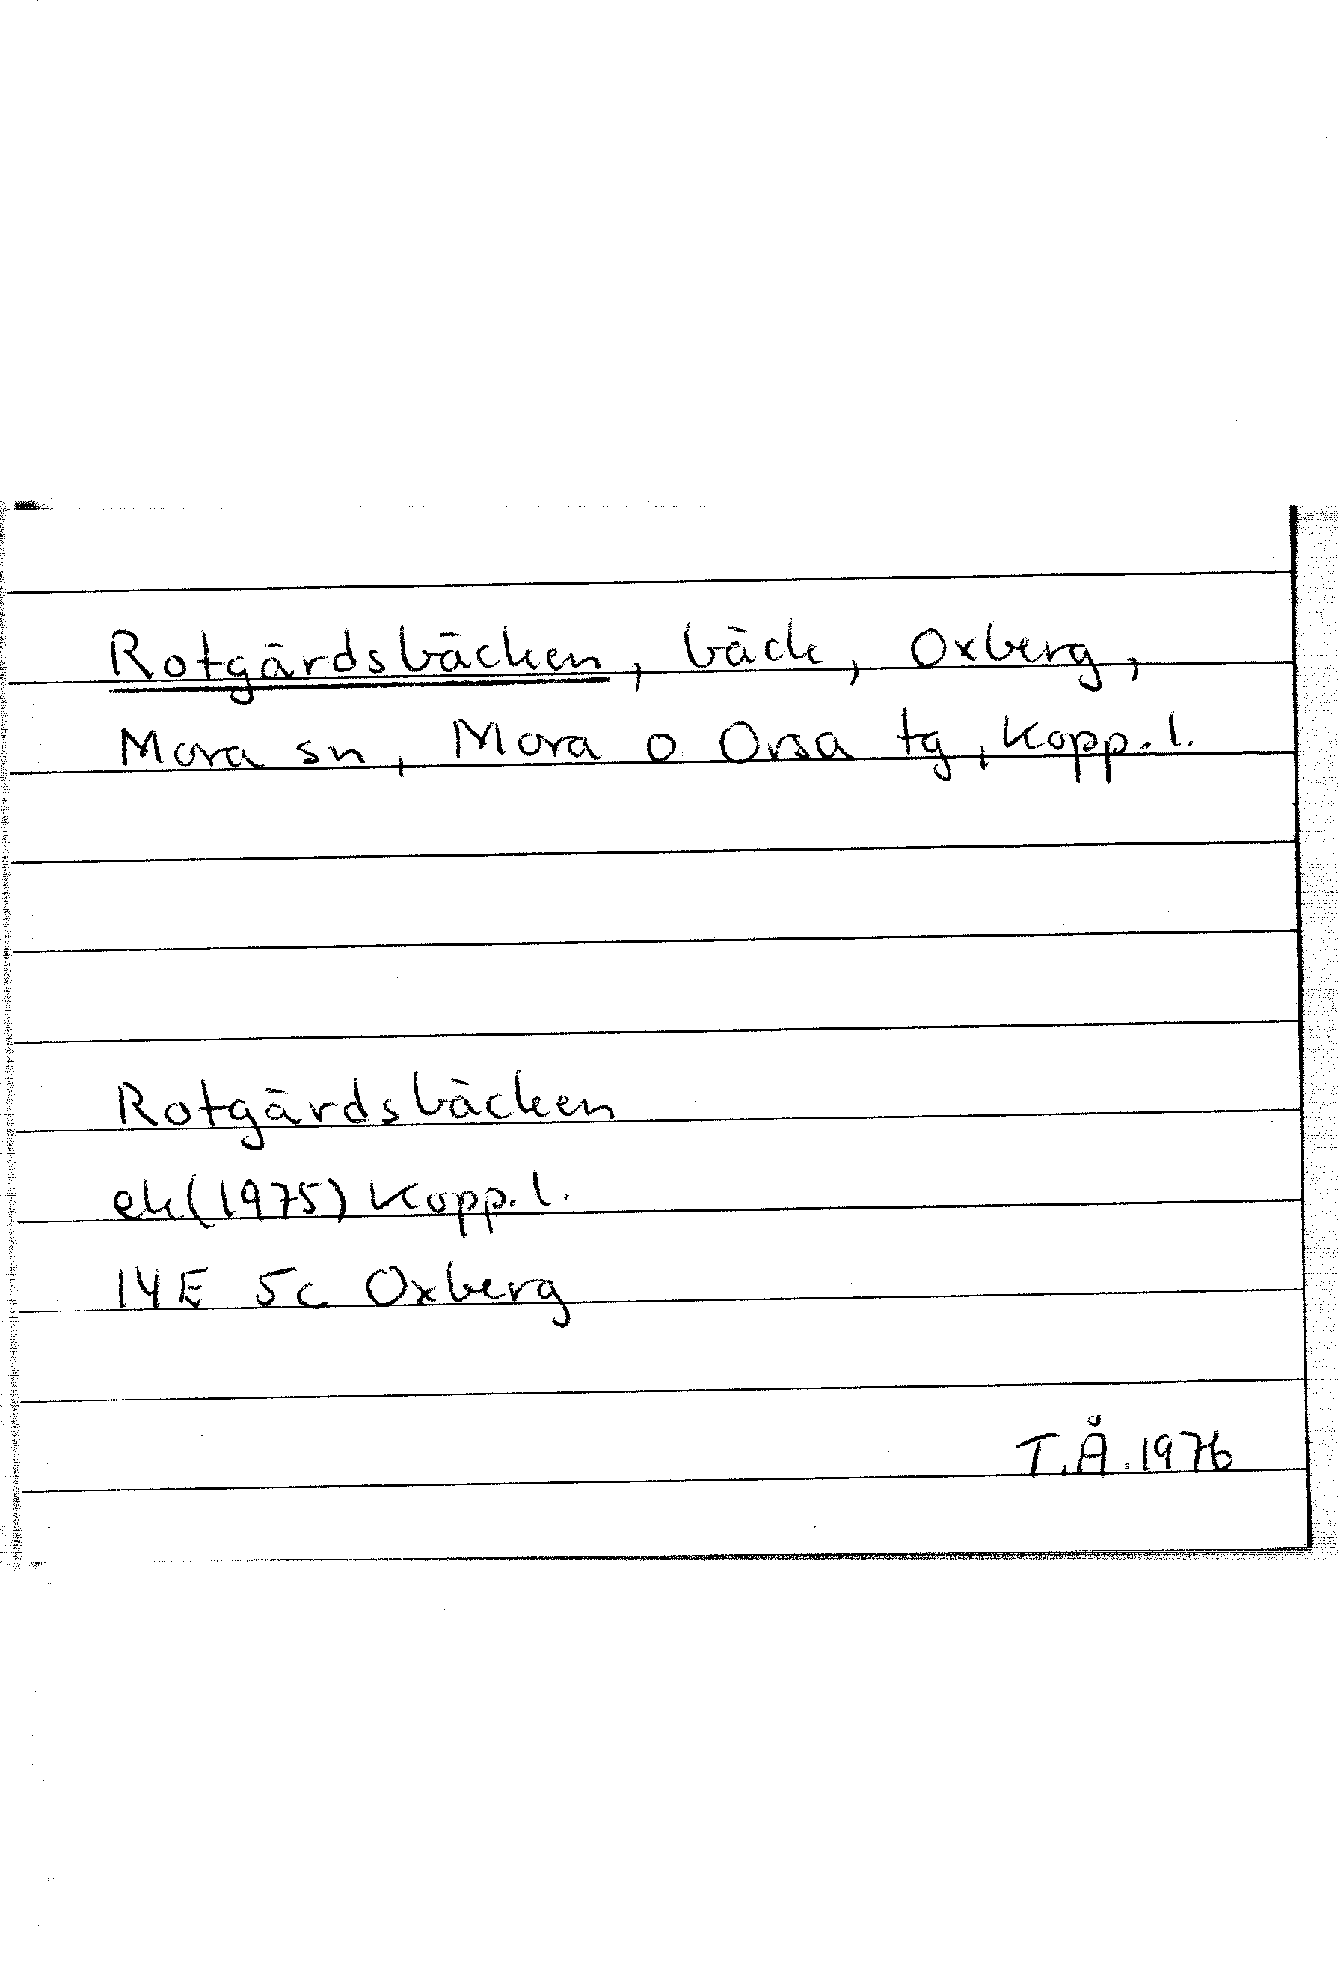 Rotgärdsbäcken, bäck, Oxberg,
Mora sn, Mora o Orsa tg, Kopp. l.
Rotgärdsbäcken
ek (1975) Kopp. l.
14E 5c Oxberg
T.Å. 1976